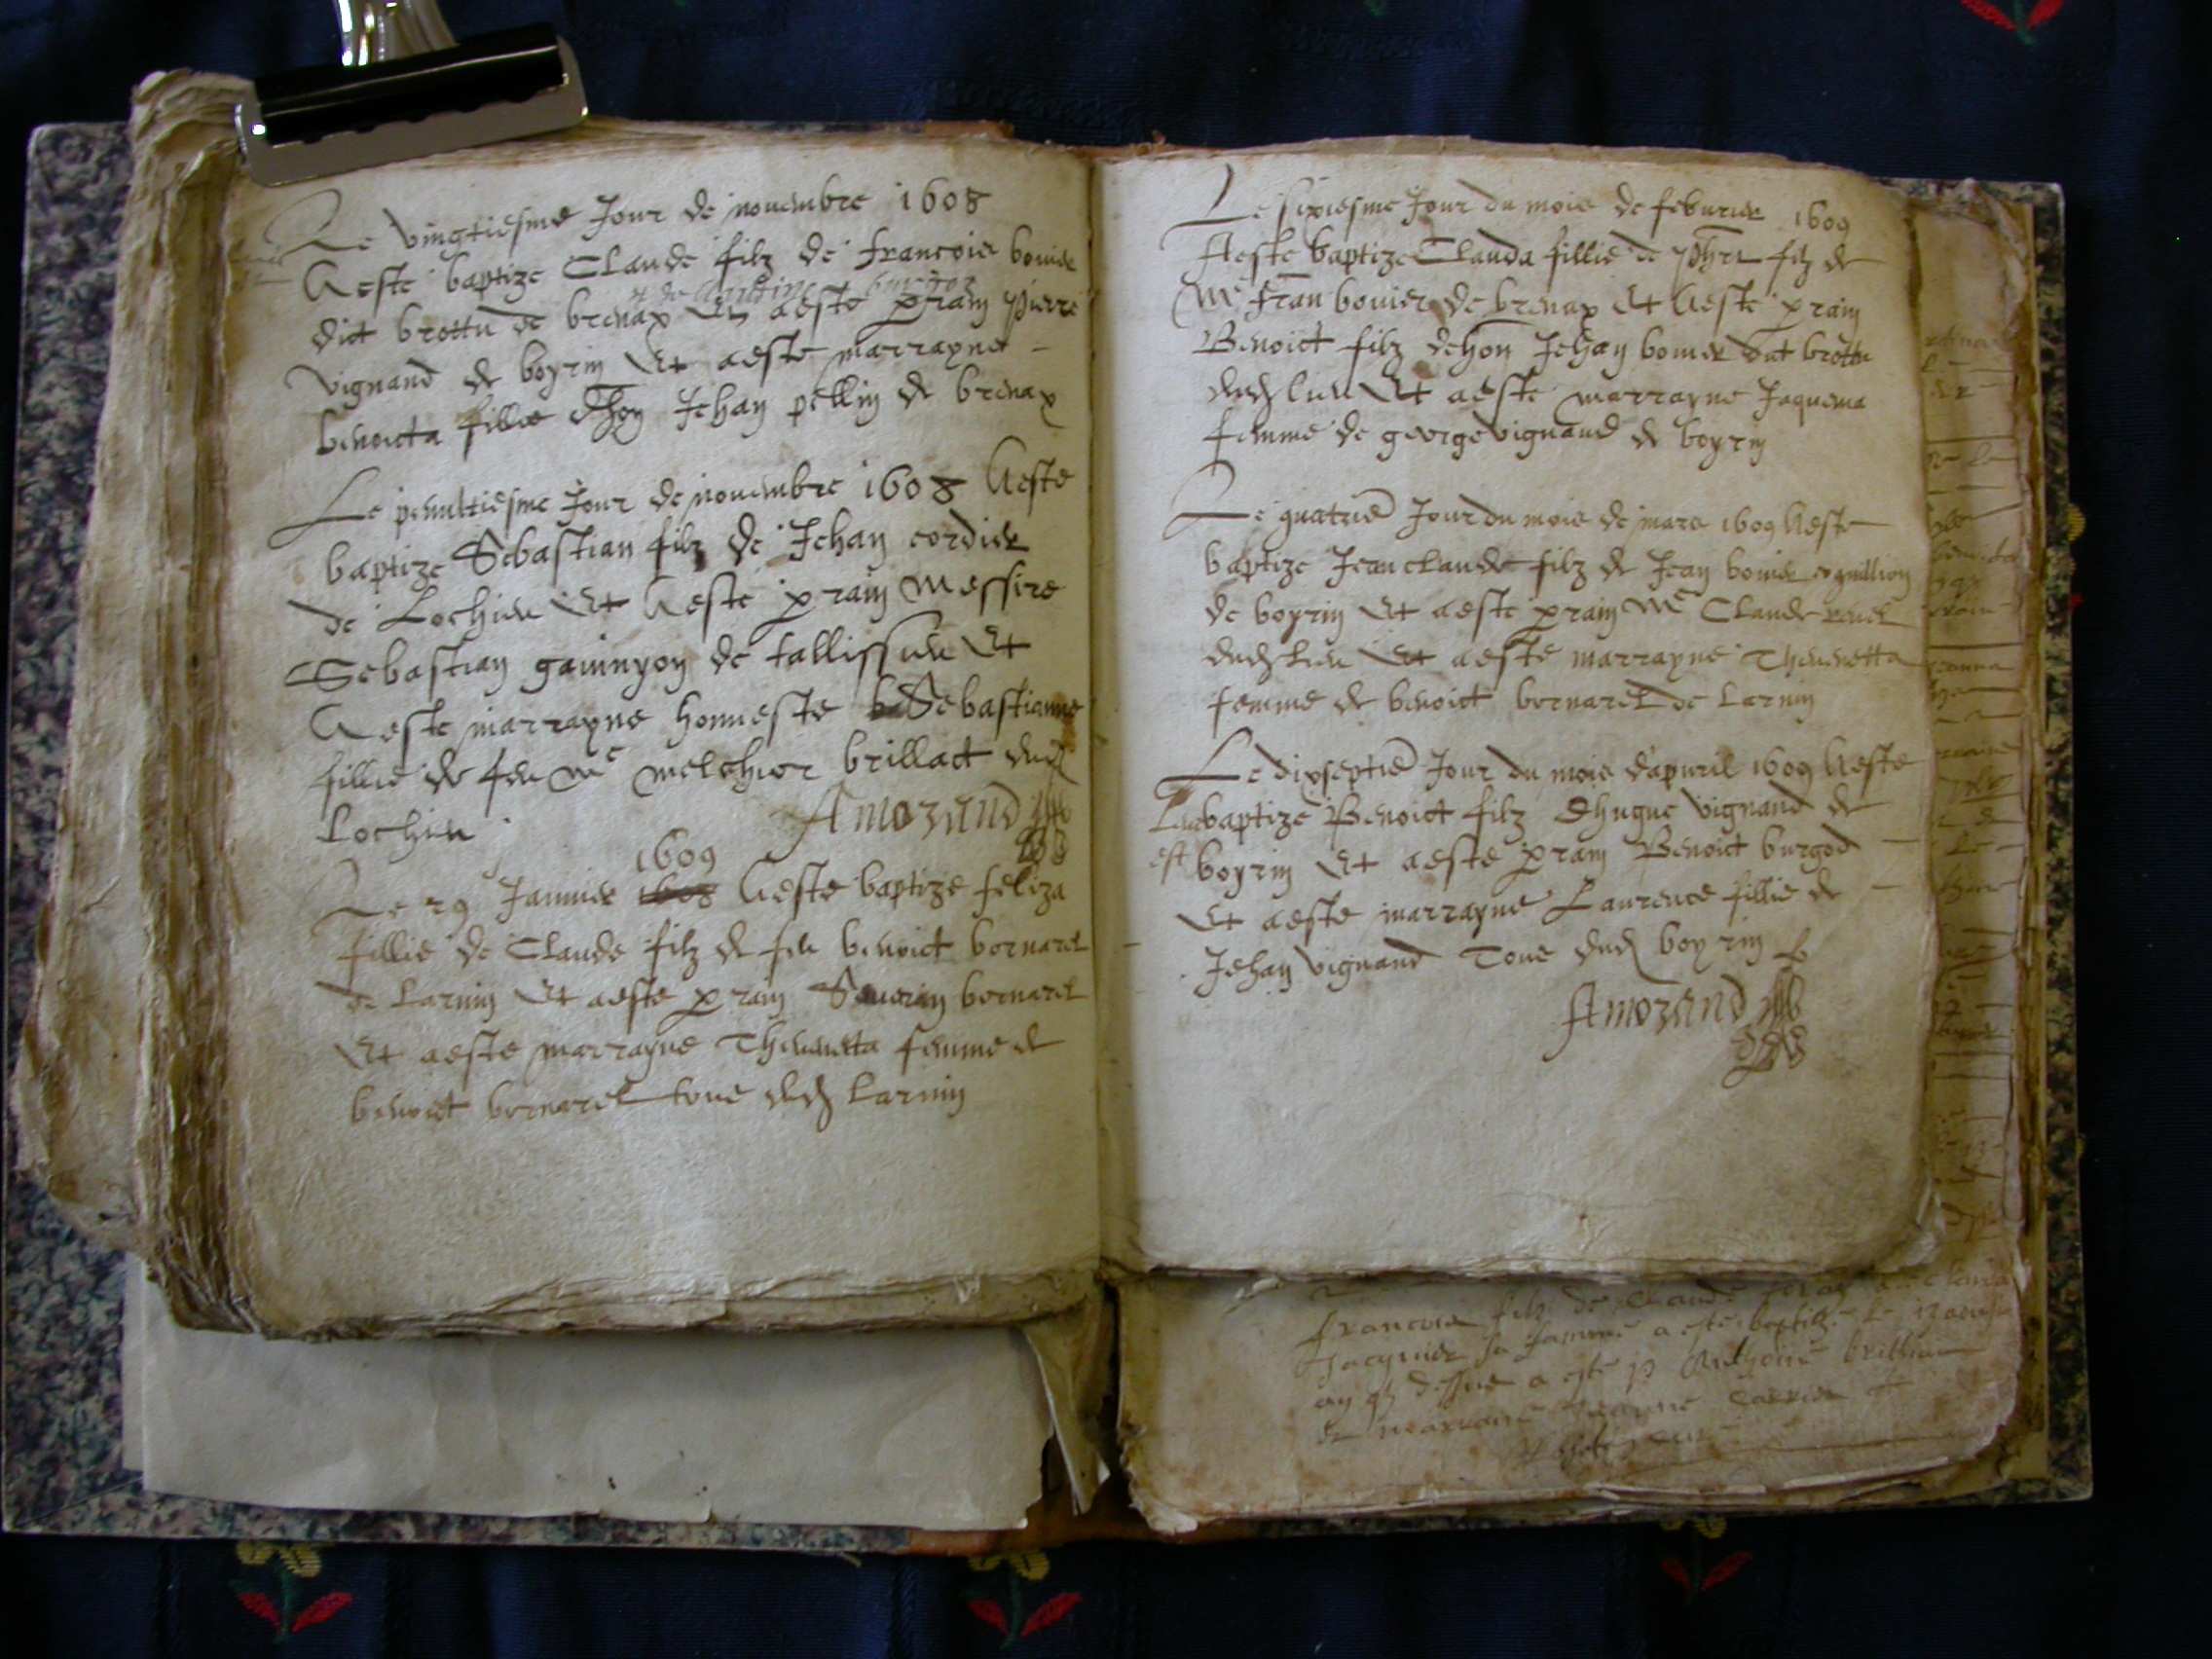 Le vingtiesme Jour de novembre 1608
Aeste baptize Claude filz de francois bovier
et de Anthoine
dict brottu de brenax Et aeste prain pierre
vignand de boyrin Et aeste marrayne
benoicta fillie dhon Jehan pellin de brenax
Le penultiesme Jour de novembre 1608 Aeste
baptize Sebastian filz de Jehan cordier
de Lochieu Et Aeste prain Messire
Sebastian gainnyon de tallissieu Et
Aeste marrayne honneste Sebastianne
fillie de feu Me melchior brillact dud
Lochieu
Amozand
1609
Le 29 Janvier 1608 Aeste baptize feliza
fillie de Claude filz de feu benoict bernarel
de Larnin Et aeste prain Severin bernarel
Et aeste marrayne Thevenetta femme de
benoict bernarel tous dud Larnin
Le sixiesme Jour du mois de febvrier 1609
Aeste baptize Clauda fillie de Phet filz de
Me fran bovier de brenax Et Aeste prain
Benoict filz dehon Jehan bovier dit brottu
dud lieu Et aeste marrayne Jaquema
femme de george vignand de boyrin
Le quatrie Jour du mois de mars 1609 Aeste
baptize Jean claude filz de Jean bovier cognillion
de boyrin Et aeste prain Me Claude
dud lieu Et aeste marrayne Thevenetta
femme de benoict bernarel de Larnin
Le dixseptie Jour du mois dapvril 1609 Aeste
baptize Benoict filz dhugue vignand de
est boyrin Et aeste prain Benoict burgod
Et aeste marrayne Laurence fillie de
Jehan vignand Tous dud boyrin
Amozand
francois filz de Claude
sa famme a este baptize le
dessus a este p Anthoine
et marraine Jeanne